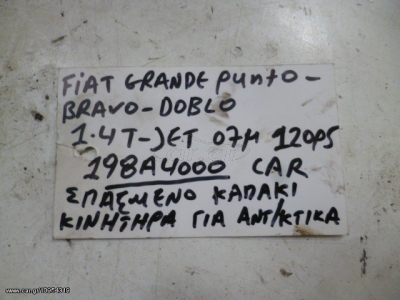 FiAT GRANDE punto -
BRAVO - DOBLO
1.4 T-JET 07M 120PS
198A4000 CAR
ΣΠΑΣΜΕΝΟ ΚΑΠΑΚΙ
ΚΙΝΗΤΗΡΑ ΓΙΑ ΑΝΤ/ΚΤΙΚΑ